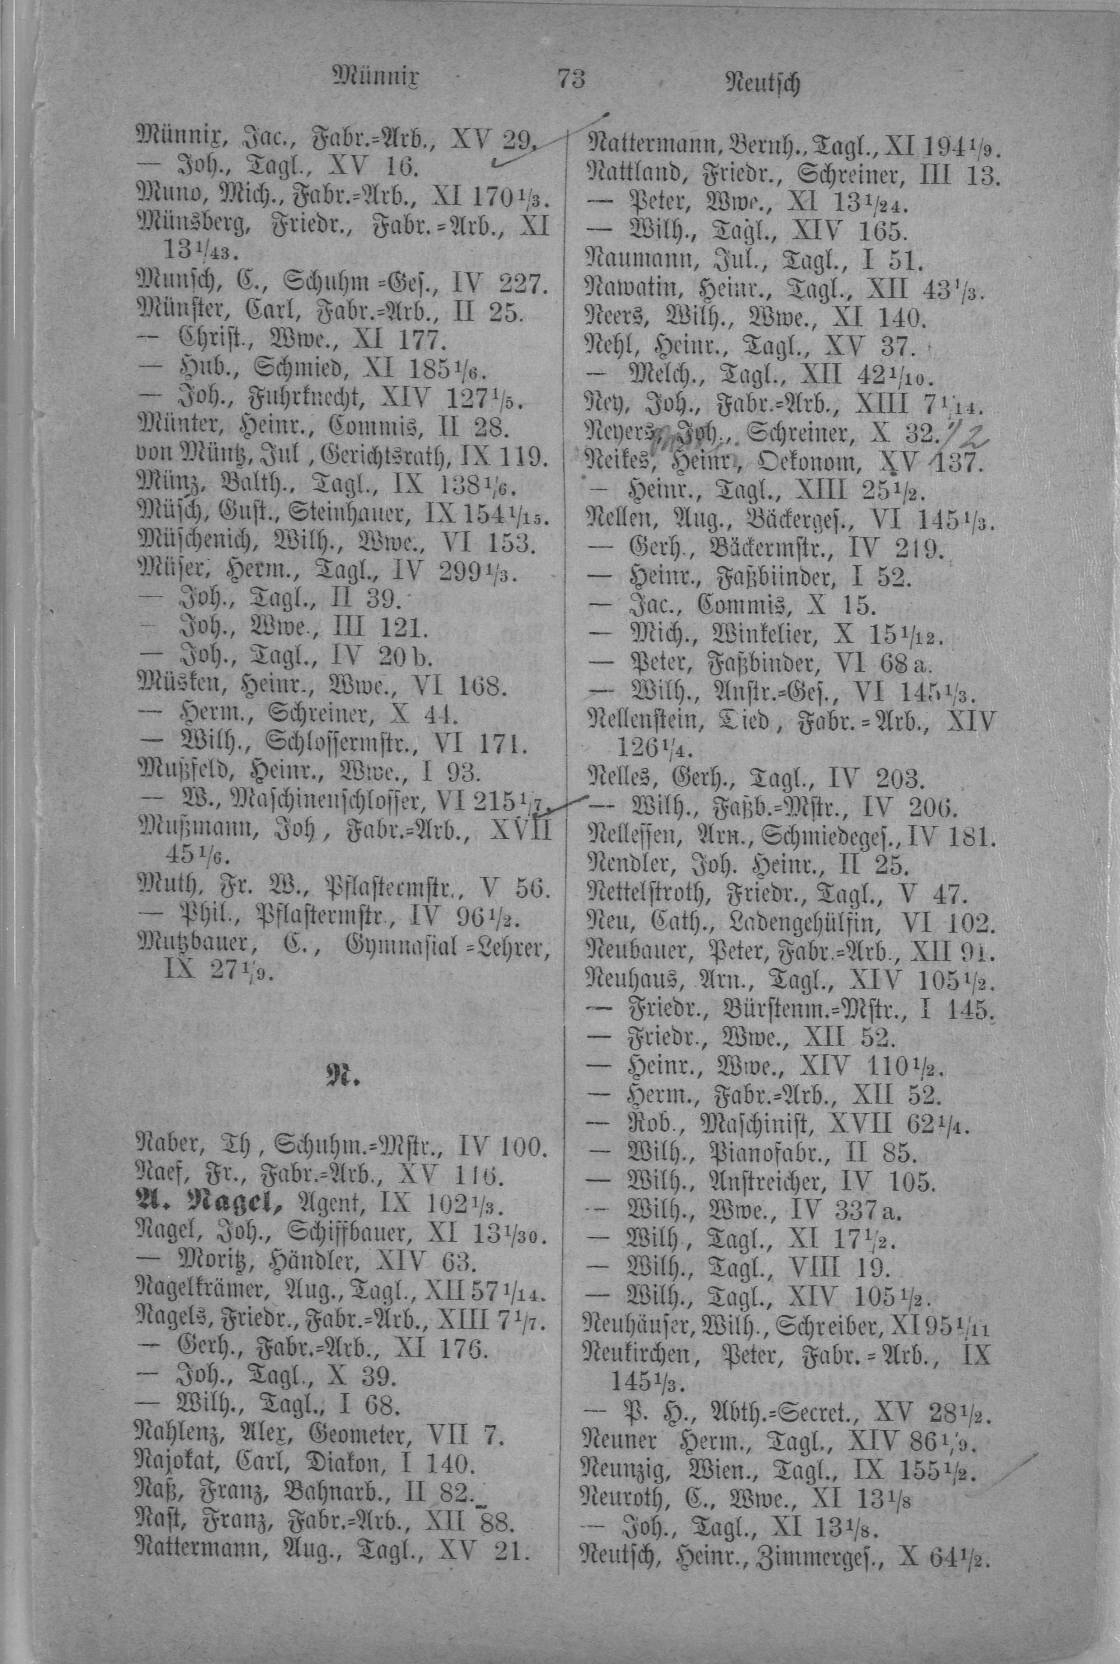 Münnix 73 Neutsch
Münnix, Jac., Fabr.=Arb., XV 29.
— Joh., Tagl., XV 16.
Muno, Mich., Fabr.=Arb., XI 170 1/3.
Münsberg, Friedr., Fabr.=Arb., XI
13 1/43.
Munsch, C., Schuhm=Ges., IV 227.
Münster, Carl, Fabr.=Arb., II 25.
— Christ., Wwe., XI 177.
— Hub., Schmied, XI 185 1/6.
— Joh., Fuhrknecht, XIV 127 1/5.
Münter, Heinr., Commis, II 28.
von Müntz, Jul, Gerichtsrath, IX 119.
Münz, Balth., Tagl., IX 138 1/6.
Müsch, Gust., Steinhauer, IX 154 1/15.
Müschenich, Wilh., Wwe., VI 153.
Müser, Herm., Tagl., IV 299 1/3.
— Joh., Tagl., II 39.
— Joh., Wwe., III 121.
— Joh., Tagl., IV 20b.
Müsken, Heinr., Wwe., VI 168.
— Herm., Schreiner, X 44.
— Wilh., Schlossermstr., VI 171.
Mußfeld, Heinr., Wwe., I 93.
— W., Maschinenschlosser, VI 215 1/7.
Mußmann, Joh, Fabr.=Arb., XVII
45 1/6.
Muth, Fr. W., Pflastermstr., V 56.
— Phil., Pflastermstr., IV 96 1/2.
Mutzbauer, C., Gymnasial=Lehrer,
IX 27 1/9.
N.
Naber, Th, Schuhm.=Mstr., IV 100.
Naef, Fr., Fabr.=Arb., XV 116.
A. Nagel, Agent, IX 102 1/3.
Nagel, Joh., Schiffbauer, XI 13 1/30.
— Moritz, Händler, XIV 63.
Nagelkrämer, Aug., Tagl., XII 57 1/14.
Nagels, Friedr., Fabr.=Arb., XIII 7 1/7.
— Gerh., Fabr.=Arb., XI 176.
— Joh., Tagl., X 39.
— Wilh., Tagl., I 68.
Nahlenz, Alex, Geometer, VII 7.
Najokat, Carl, Diakon, I 140.
Naß, Franz, Bahnarb., II 82.
Nast, Franz, Fabr.=Arb., XII 88.
Nattermann, Aug., Tagl., XV 21.
Nattermann, Bernh., Tagl., XI 194 1/9.
Nattland, Friedr., Schreiner, III 13.
— Peter, Wwe., XI 13 1/24.
— Wilh., Tagl., XIV 165.
Naumann, Jul., Tagl., I 51.
Nawatin, Heinr., Tagl., XII 43 1/3.
Neers, Wilh., Wwe., XI 140.
Nehl, Heinr., Tagl., XV 37.
— Melch., Tagl., XII 42 1/10.
Ney, Joh., Fabr.=Arb., XIII 7 1/14.
Neyers, Joh., Schreiner, X 32. 1/2
Neikes, Heinr., Oekonom, XV 137.
— Heinr., Tagl., XIII 25 1/2.
Nellen, Aug., Bäckerges., VI 145 1/3.
— Gerh., Bäckermstr., IV 219.
— Heinr., Faßbiinder, I 52.
— Jac., Commis, X 15.
— Mich., Winkelier, X 15 1/12.
— Peter, Faßbinder, VI 68a.
— Wilh., Anstr.=Ges., VI 145 1/3.
Nellenstein, Tied, Fabr.=Arb., XIV
126 1/4.
Nelles, Gerh., Tagl., IV 203.
— Wilh., Faßb.=Mstr., IV 206.
Nellessen, Arn., Schmiedeges., IV 181.
Nendler, Joh. Heinr., II 25.
Nettelstroth, Friedr., Tagl., V 47.
Neu, Cath., Ladengehülfin, VI 102.
Neubauer, Peter, Fabr.=Arb., XII 91.
Neuhaus, Arn., Tagl., XIV 105 1/2.
— Friedr., Bürstenm.=Mstr., I 145.
— Friedr., Wwe., XII 52.
— Heinr., Wwe., XIV 110 1/2.
— Herm., Fabr.=Arb., XII 52.
— Rob., Maschinist, XVII 62 1/4.
— Wilh., Pianofabr., II 85.
— Wilh., Anstreicher, IV 105.
— Wilh., Wwe., IV 337a.
— Wilh, Tagl., XI 17 1/2.
— Wilh., Tagl., VIII 19.
— Wilh., Tagl., XIV 105 1/2.
Neuhäuser, Wilh., Schreiber, XI 95 1/11
Neukirchen, Peter, Fabr.=Arb., IX
145 1/3.
— P. H., Abth.=Secret., XV 28 1/2.
Neuner Herm., Tagl., XIV 86 1/9.
Neunzig, Wien., Tagl., IX 155 1/2.
Neuroth, C., Wwe., XI 13 1/8
— Joh., Tagl., XI 13 1/8.
Neutsch, Heinr., Zimmerges., X 64 1/2.